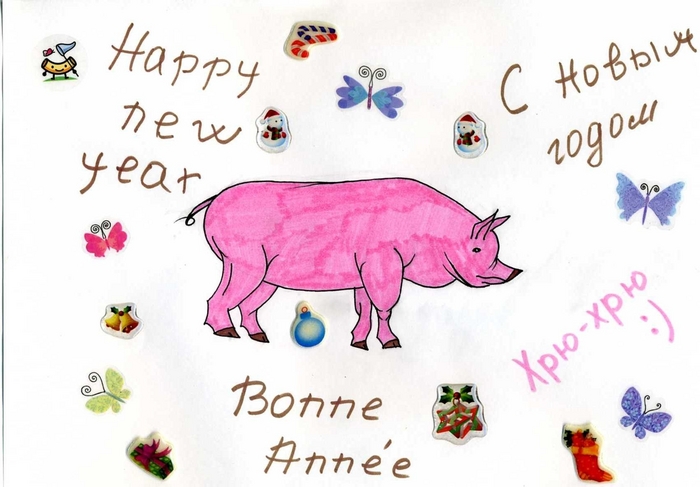 Happy
new
year
С новым
годом
Хрю-хрю
:)
Bonne
Année